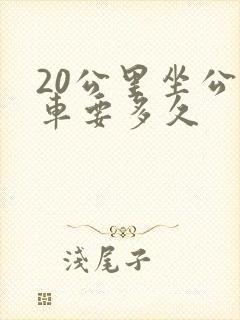 20公里坐公
車要多久
淺尾子